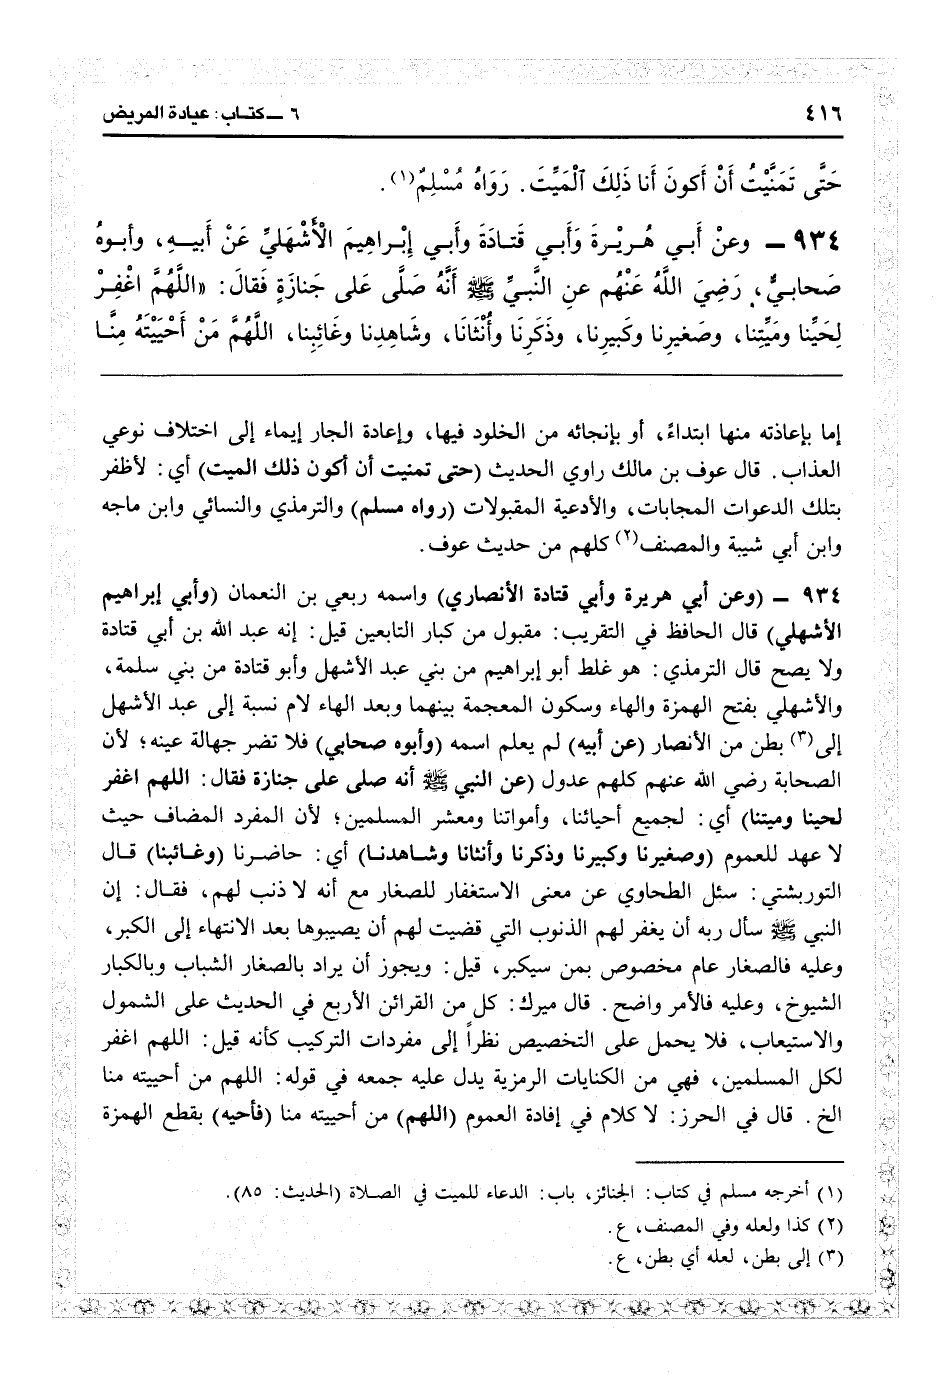 ٤١٦
٦ ــ كتـاب: عيادة المريض
حَتَّى تَمَنَّيْتُ أَنْ أَكونَ أَنا ذَلِكَ ٱلْمَيِّتَ. رَوَاهُ مُسْلِمٌ(١).
٩٣٤ ــ وعنْ أَبي هُـرَيْـرةَ وَأَبي قَتـادَةَ وأَبي إبْـراهِيمَ الْأَشْهَليِّ عَنْ أَبيــهِ، وأَبـوهُ
صَحابيٌّ، رَضِيَ اللَّهُ عَنْهُم عنِ النَّبيِّ ﷺ أَنَّهُ صَلَّى عَلى جَنازَةٍ فَقالَ: «اللَّهُمَّ اغْفِـرْ
لِحَيِّنا ومَيِّتِنا، وصَغيرِنا وكَبيرِنا، وذَكَرِنَا وأُنْثَانَا، وشَاهِدِنا وغَائِبِنا، اللَّهُمَّ مَنْ أَحْيَيْتَهُ مِنَّـا
إما بإعاذته منها ابتداءً، أو بإنجائه من الخلود فيها، وإعادة الجار إيماء إلى اختلاف نوعي
العذاب. قال عوف بن مالك راوي الحديث (حتى تمنيت أن أكون ذلك الميت) أي: لأظفر
بتلك الدعوات المجابات، والأدعية المقبولات (رواه مسلم) والترمذي والنسائي وابن ماجه
وابن أبي شيبة والمصنف(٢) كلهم من حديث عوف.
٩٣٤ ــ (وعن أبي هريرة وأبي قتادة الأنصاري) واسمه ربعي بن النعمان (وأبي إبراهيم
الأشهلي) قال الحافظ في التقريب: مقبول من كبار التابعين قيل: إنه عبد الله بن أبي قتادة
ولا يصح قال الترمذي: هو غلط أبو إبراهيم من بني عبد الأشهل وأبو قتادة من بني سلمة،
والأشهلي بفتح الهمزة والهاء وسكون المعجمة بينهما وبعد الهاء لام نسبة إلى عبد الأشهل
إلى(٣) بطن من الأنصار (عن أبيه) لم يعلم اسمه (وأبوه صحابي) فلا تضر جهالة عينه؛ لأن
الصحابة رضي الله عنهم كلهم عدول (عن النبي ﷺ أنه صلى على جنازة فقال: اللهم اغفر
لحينا وميتنا) أي: لجميع أحيائنا، وأمواتنا ومعشر المسلمين؛ لأن المفرد المضاف حيث
لا عهد للعموم (وصغيرنا وكبيرنا وذكرنا وأنثانا وشاهدنـا) أي: حاضـرنا (وغـائبنا) قـال
التوربشتي: سئل الطحاوي عن معنى الاستغفار للصغار مع أنه لا ذنب لهم، فقـال: إن
النبي ﷺ سأل ربه أن يغفر لهم الذنوب التي قضيت لهم أن يصيبوها بعد الانتهاء إلى الكبر،
وعليه فالصغار عام مخصوص بمن سيكبر، قيل: ويجوز أن يراد بالصغار الشباب وبالكبار
الشيوخ، وعليه فالأمر واضح. قال ميرك: كل من القرائن الأربع في الحديث على الشمول
والاستيعاب، فلا يحمل على التخصيص نظراً إلى مفردات التركيب كأنه قيل: اللهم اغفر
لكل المسلمين، فهي من الكنايات الرمزية يدل عليه جمعه في قوله: اللهم من أحييته منا
الخ. قال في الحرز: لا كلام في إفادة العموم (اللهم) من أحييته منا (فأحيه) بقطع الهمزة
(١) أخرجه مسلم في كتاب: الجنائز، باب: الدعاء للميت في الصـلاة (الحديث: ٨٥).
(٢) كذا ولعله وفي المصنف، ع.
(٣) إلى بطن، لعله أي بطن، ع.